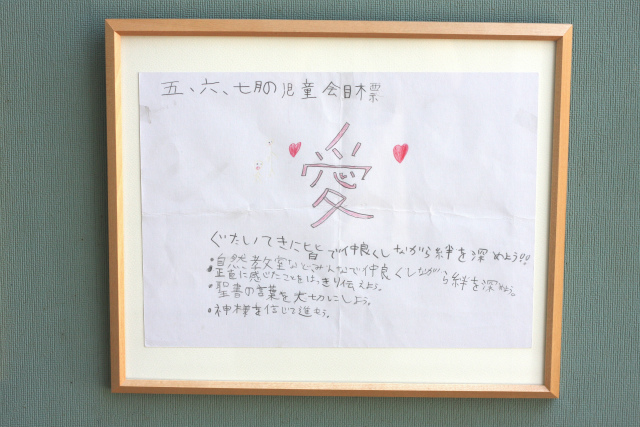 五、六、七月の児童会目標
愛
ぐたいてきに皆で仲良くしながら絆を深めよう!!
・自然教室などみんなで仲良くしながら絆を深めよう。
・正直に感じたことをはっきり伝えよう。
・聖書の言葉を大切にしよう。
・神様を信じて進もう。